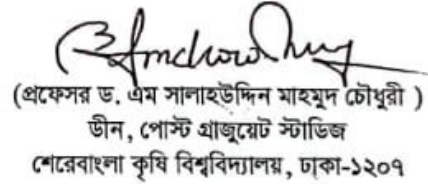 (প্রফেসর ড. এম সালাহউদ্দিন মাহমুদ চৌধুরী )
ডীন, পোস্ট গ্রাজুয়েট স্টাডিজ
শেরেবাংলা কৃষি বিশ্ববিদ্যালয়, ঢাকা-১২০৭